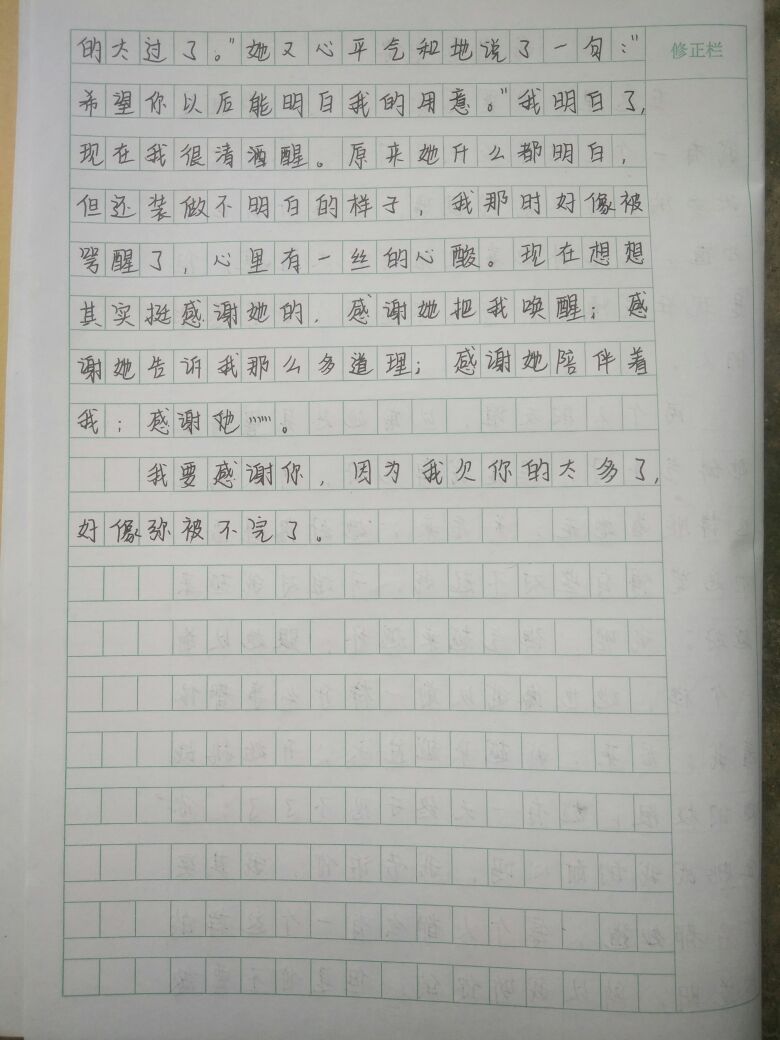 的太过了。"她又心平气和地说了一句："
修正栏
希望你以后能明白我的用意。"我明白了，
现在我很清酒醒。原来她什么都明白，
但还装做不明白的样子，我那时好像被
骂醒了，心里有一丝的心酸。现在想想
其实挺感谢她的，感谢她把我唤醒；感
谢她告诉我那么多道理；感谢她陪伴着
我；感谢她……。
我要感谢你，因为我欠你的太多了，
好像弥被不完了。